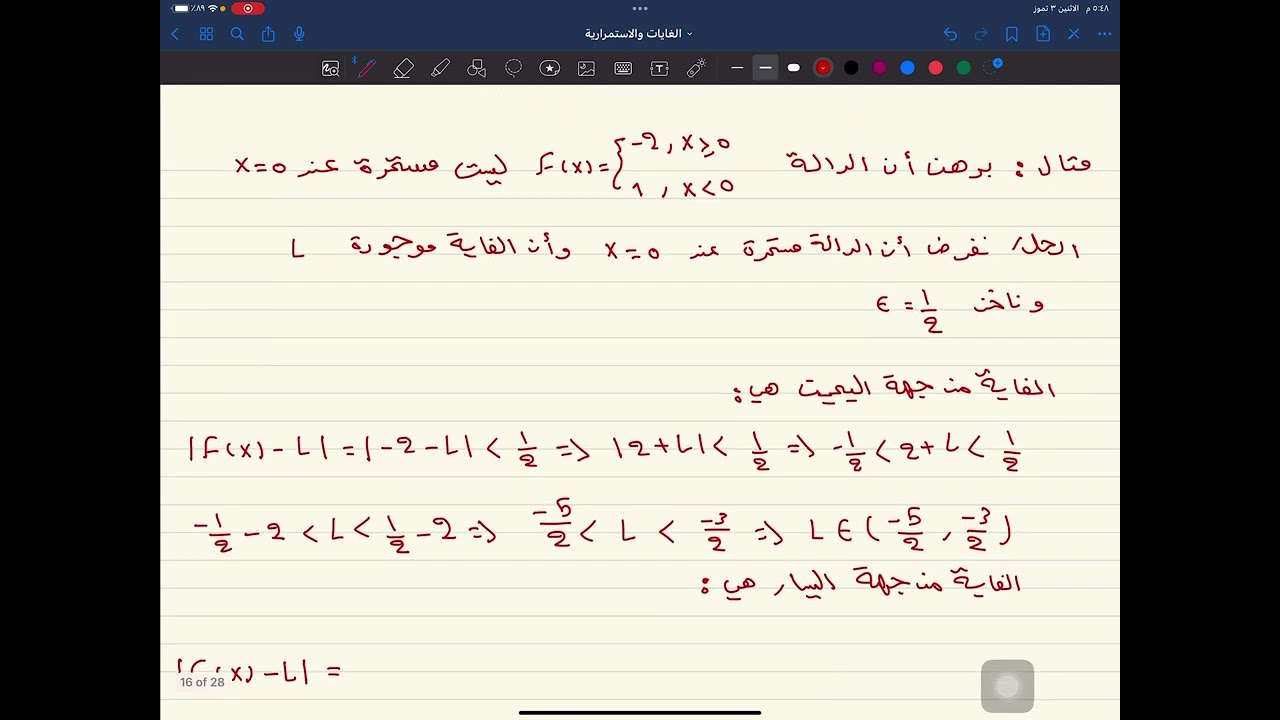 ٥:٤٨ م الاثنين ٣ تموز
٨٩٪
الغايات والاستمرارية
مثال : برهن أن الدالة F(x) = { -2 , x ≥ 0 ليست مستمرة عند x=0
1 , x < 0
الحل/ نفرض أن الدالة مستمرة عند x = 0 وأن الغاية موجودة L
و ناخذ ϵ = 1/2
الغاية من جهة اليمين هي :
|F(x) - L| = |-2 - L| < 1/2 => |2 + L| < 1/2 => -1/2 < 2 + L < 1/2
-1/2 - 2 < L < 1/2 - 2 => -5/2 < L < -3/2 => L ∈ ( -5/2 , -3/2 )
الغاية من جهة اليسار هي :
|F(x) - L| =
16 of 28